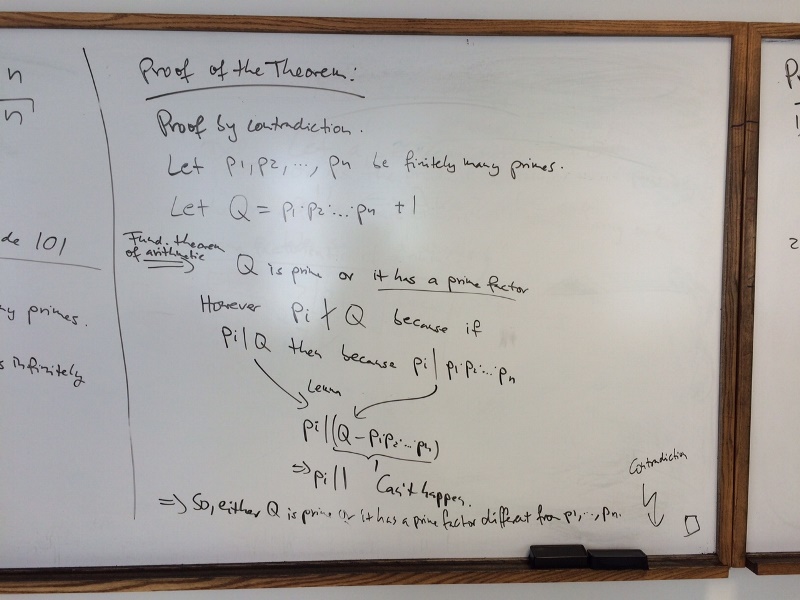 n
n
de 101
ny primes.
s infinitely
Proof of the Theorem:
Proof by contradiction.
Let p1, p2, ..., pn be finitely many primes.
Let Q = p1·p2·...·pn +1
Fund. theorem
of arithmetic
⟹ Q is prime or it has a prime factor
However pi ∤ Q because if
pi | Q then because pi | p1·p2·...·pn
pi | (Q - p1·p2·...·pn)
⇒ pi | 1
1
Can't happen.
⇒ So, either Q is prime or it has a prime factor different from p1, ..., pn.
Contradiction
□
P
1
2